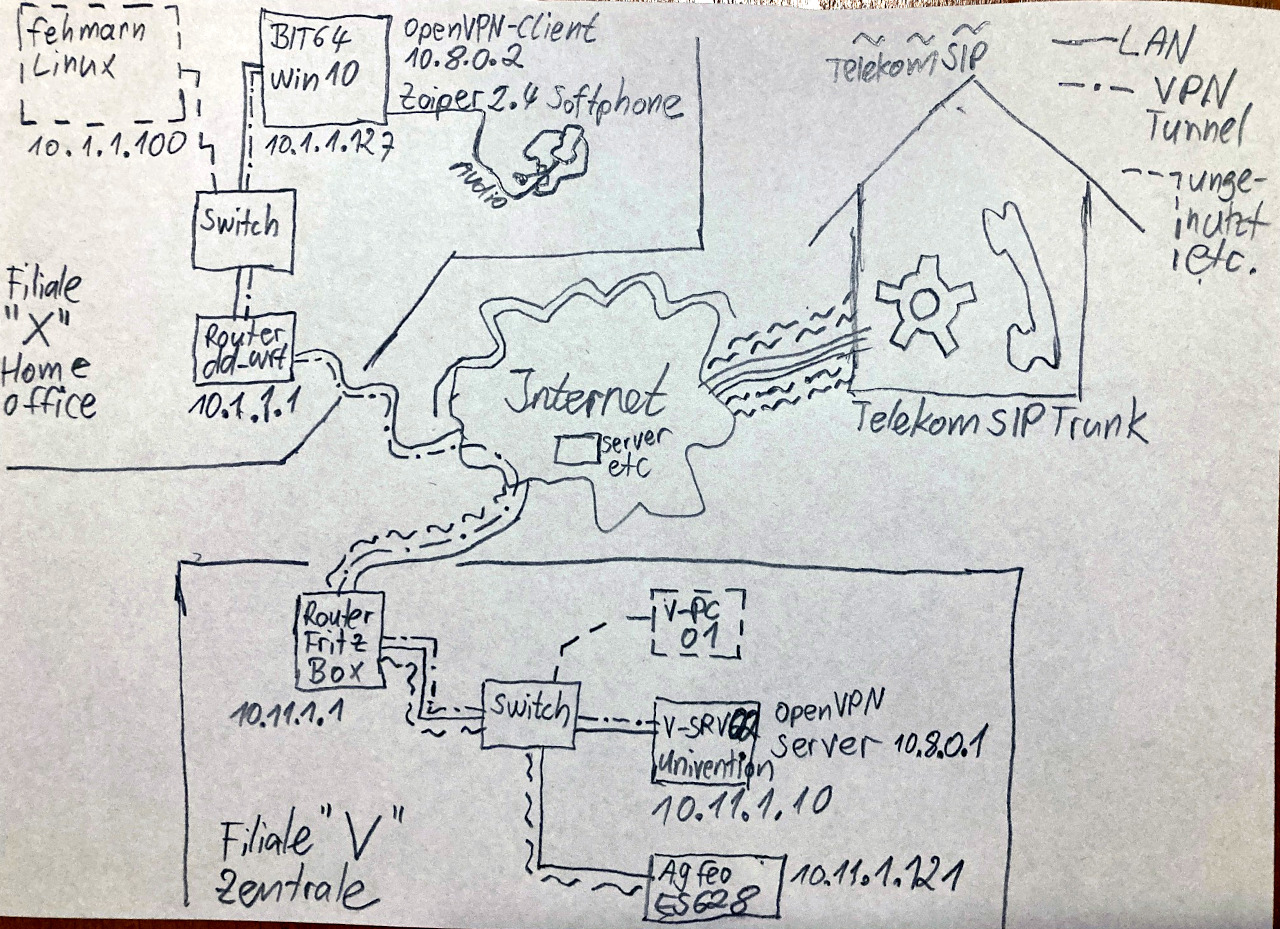 fehmarn
Linux
10.1.1.100
BIT64
Win10
10.1.1.127
OpenVPN-Client
10.8.0.2
Zoiper 2.4 Softphone
Audio
Telekom SIP
LAN
VPN
Tunnel
unge-
nutzt
etc.
Switch
Filiale
"X"
Home
office
Router
dd_wrt
10.1.1.1
Internet
server
etc
Telekom SIP Trunk
Router
Fritz
Box
10.11.1.1
V-PC
01
Switch
V-SRV02
Univention
OpenVPN
Server 10.8.0.1
10.11.1.10
Filiale "V"
Zentrale
Agfeo
ES628
10.11.1.121